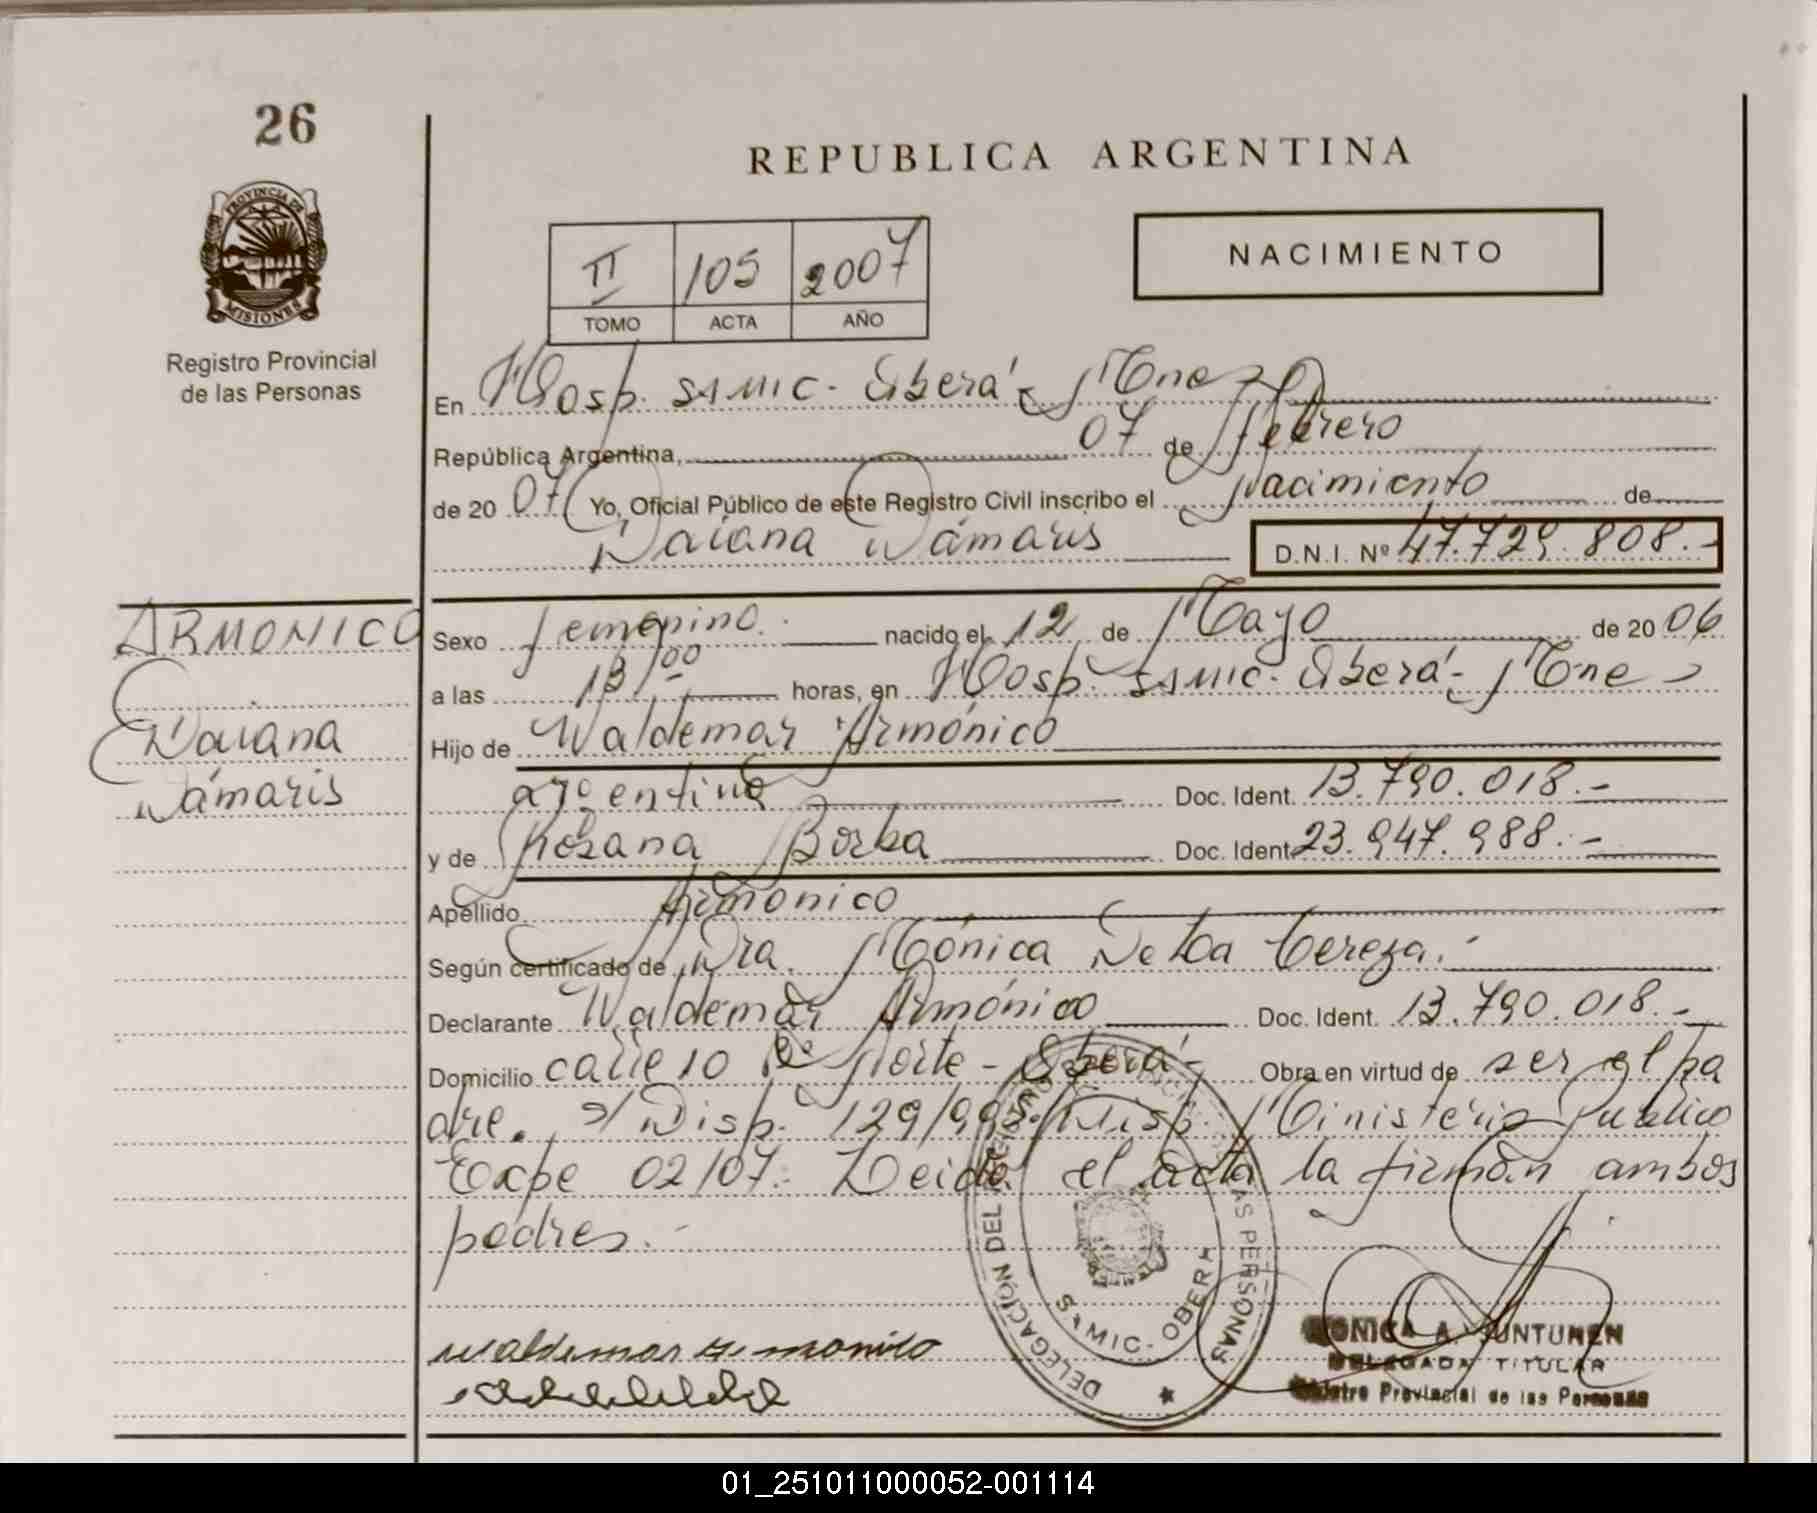 26
REPUBLICA ARGENTINA
PROVINCIA DE
MISIONES
Registro Provincial
de las Personas
II 105 2007
TOMO ACTA AÑO
NACIMIENTO
En Hosp. SAMIC. Oberá - Mnes
República Argentina, 07 de febrero
de 2007 Yo, Oficial Público de este Registro Civil inscribo el Nacimiento de
Daiana Dámaris D.N.I. Nº 47.729.808.-
ARMONICO
Daiana
Dámaris
Sexo femenino. nacido el 12 de Mayo de 2006
a las 13,00 horas, en Hosp. SAMIC. Oberá - Mnes
Hijo de Waldemar Armónico
argentino Doc. Ident. 13.790.018.-
y de Rosana Borba Doc. Ident. 23.947.988.-
Apellido Armonico
Según certificado de Dra. Mónica De La Cereza.
Declarante Waldemar Armónico Doc. Ident. 13.790.018.-
Domicilio calle 10 Norte - Oberá - Obra en virtud de ser el pa
dre. s/ Disp. 129/99 Disp. Ministerio Publico
Expe 02/07. Leida el acta la firman ambos
padres.-
DELEGACIÓN DEL REGISTRO PROVINCIAL DE LAS PERSONAS
SAMIC. OBERA
Waldemar Armonico
MONICA A. JUNTUNEN
DELEGADA TITULAR
Registro Provincial de las Personas
01_251011000052-001114